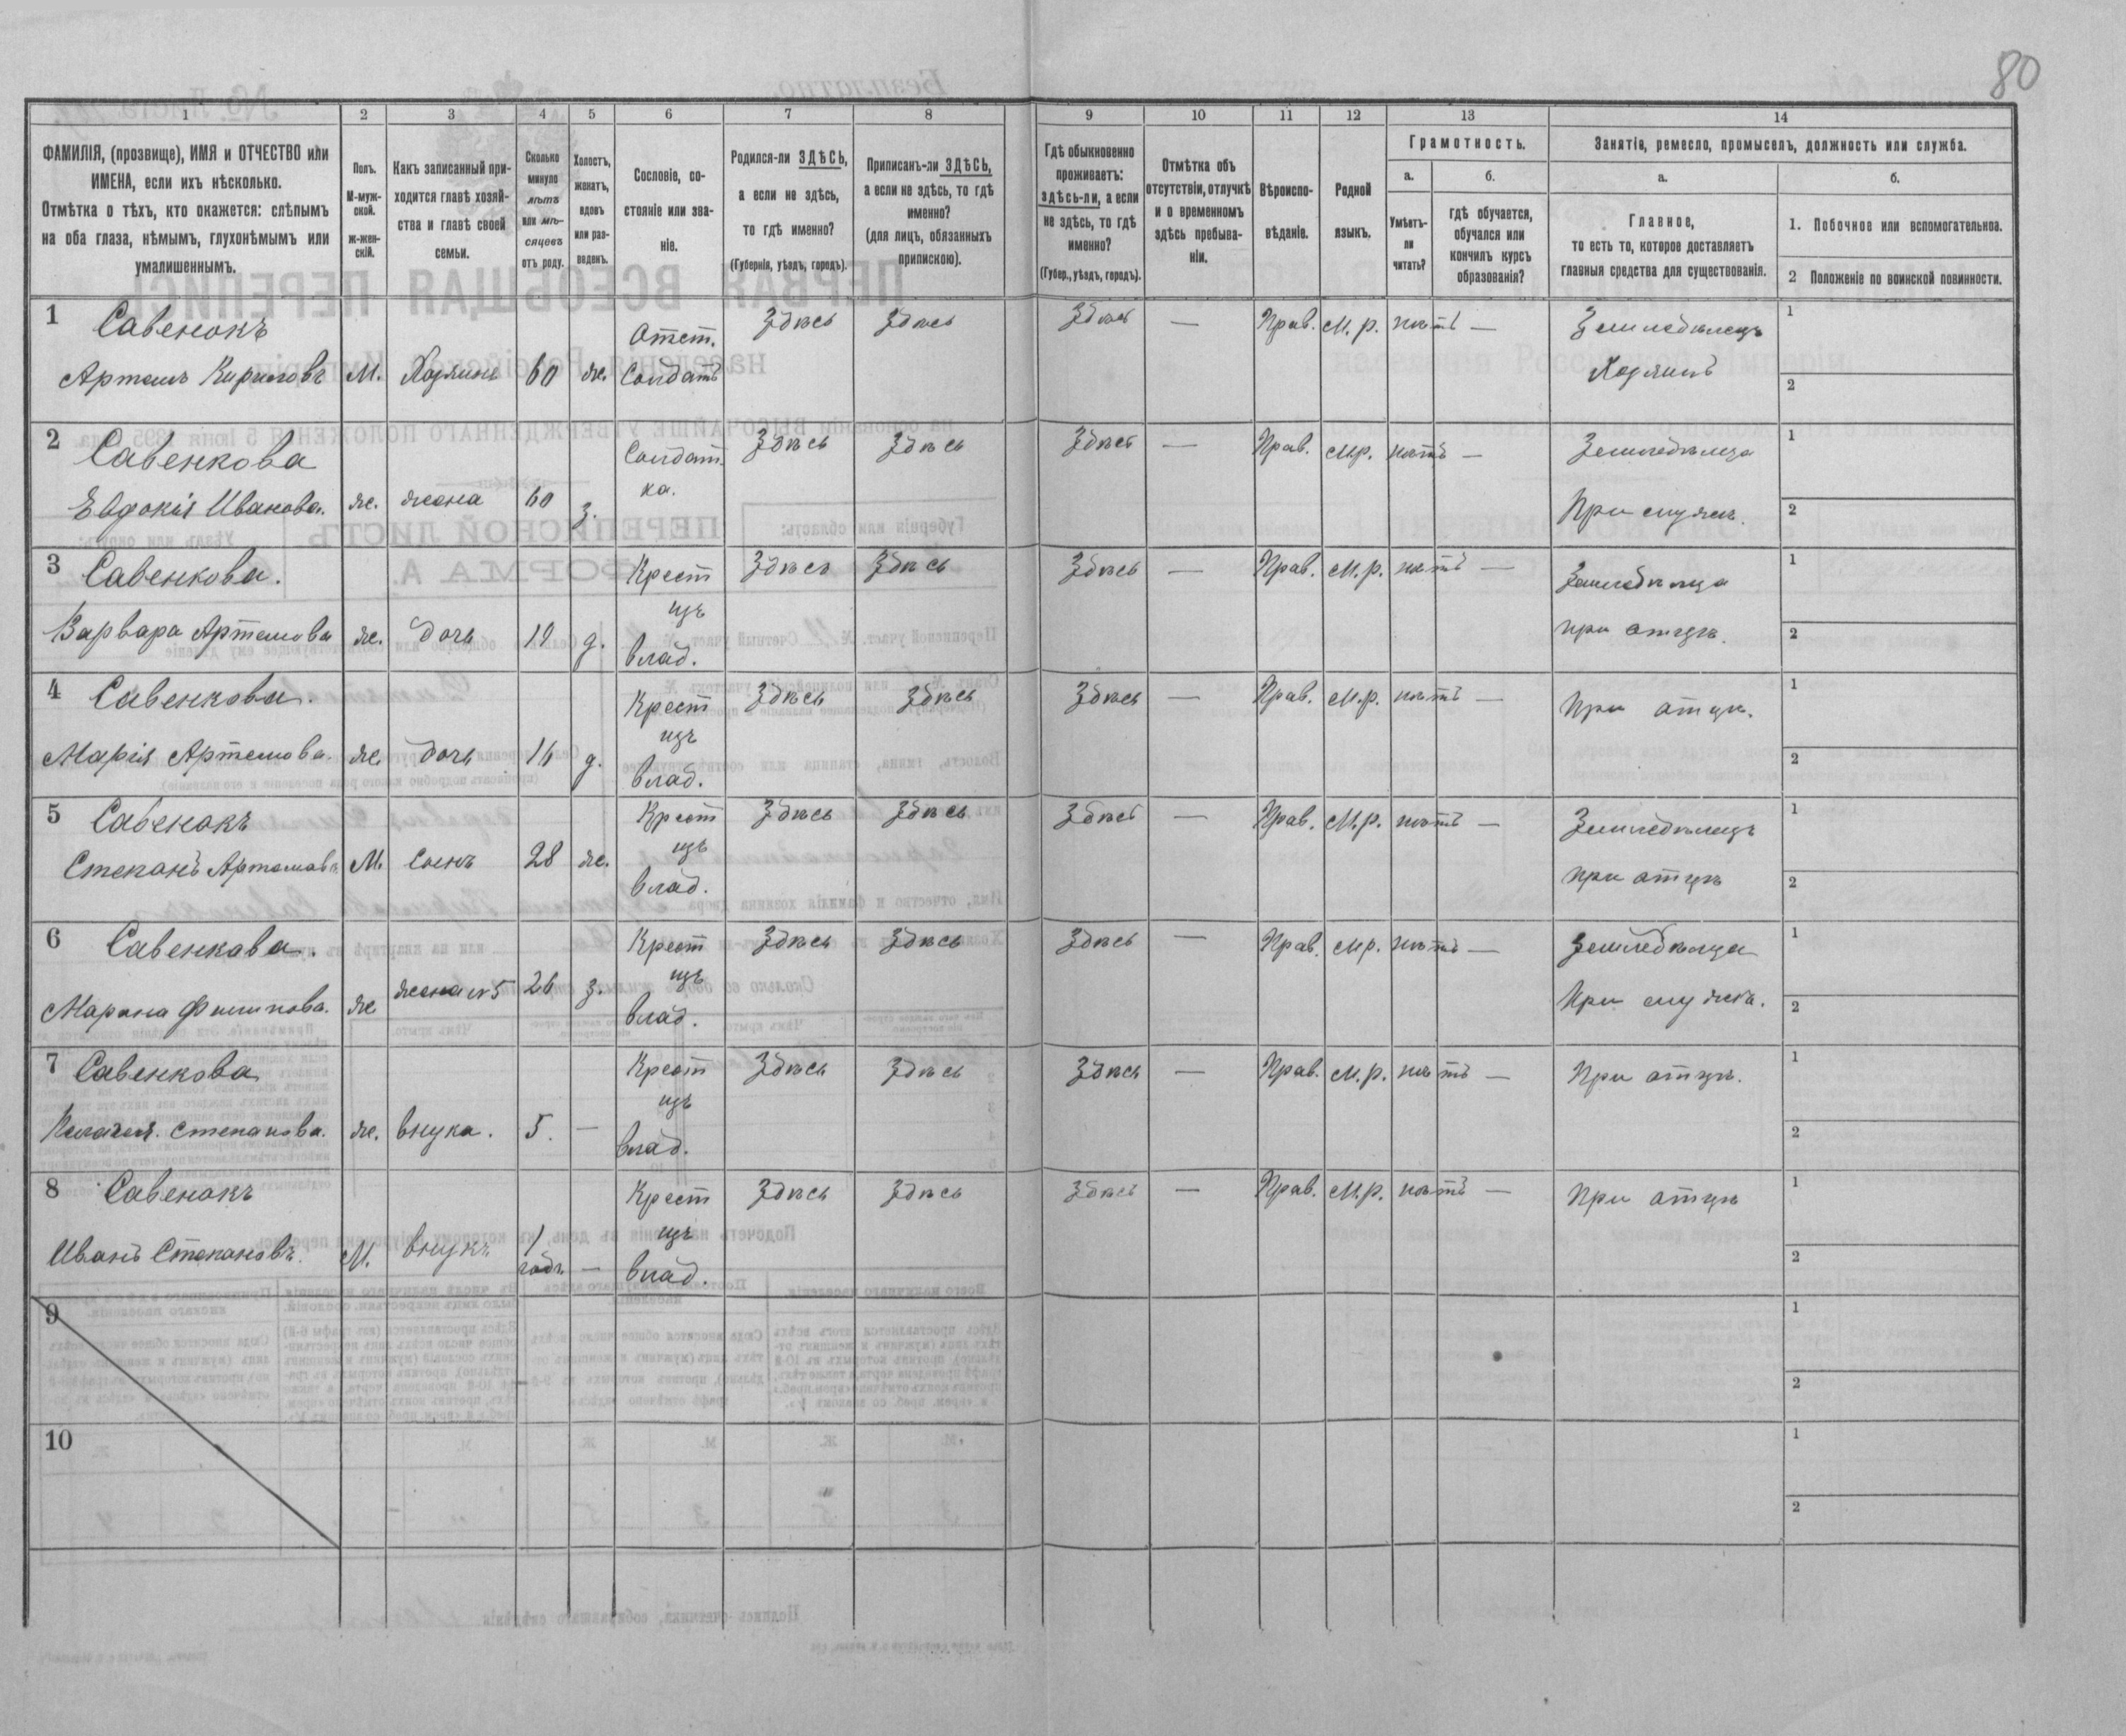 80
1 2 3 4 5 6 7 8 9 10 11 12 13 14
ФАМИЛІЯ, (прозвище), ИМЯ и ОТЧЕСТВО или
ИМЕНА, если ихъ нѣсколько.
Отмѣтка о тѣхъ, кто окажется: слѣпымъ
на оба глаза, нѣмымъ, глухонѣмымъ или
умалишеннымъ.
Полъ.
М-муж-
ской.
ж-жен-
скій.
Какъ записанный при-
ходится главѣ хозяй-
ства и главѣ своей
семьи.
Сколько
минуло
лѣтъ
или мѣ-
сяцевъ
отъ роду.
Холостъ,
женатъ,
вдовъ
или раз-
веденъ.
Сословіе, со-
стояніе или зва-
ніе.
Родился-ли ЗДѢСЬ,
а если не здѣсь,
то гдѣ именно?
(Губернія, уѣздъ, городъ).
Приписанъ-ли ЗДѢСЬ,
а если не здѣсь, то гдѣ
именно?
(для лицъ, обязанныхъ
припискою).
Гдѣ обыкновенно
проживаетъ:
здѣсь-ли, а если
не здѣсь, то гдѣ
именно?
(Губер., уѣздъ, городъ).
Отмѣтка объ
отсутствіи, отлучкѣ
и о временномъ
здѣсь пребыва-
ніи.
Вѣроиспо-
вѣданіе.
Родной
языкъ.
Грамотность.
а.
Умѣетъ-
ли
читать?
б.
гдѣ обучается,
обучался или
кончилъ курсъ
образованія?
Занятіе, ремесло, промыселъ, должность или служба.
а.
Главное,
то есть то, которое доставляетъ
главныя средства для существованія.
б.
1. Побочное или вспомогательное.
2 Положеніе по воинской повинности.
1 Савенокъ
Артемъ Кириловъ М. Хозяинъ 60 ж. Отст. Солдатъ Здѣсь Здѣсь Здѣсь — Прав. М. р. нѣтъ — Земледѣлецъ
Хозяинъ
1
2
2 Савенкова
Евдокія Иванова. ж. жена 60 з. Солдат-
ка. Здѣсь Здѣсь Здѣсь — Прав. М.р. нѣтъ — Земледѣлица
При мужѣ.
1
2
3 Савенкова.
Варвара Артемова ж. дочь 19 д. Крест
изъ
влад. Здѣсь Здѣсь Здѣсь — Прав. М.р. нѣтъ — Земледѣлица
при отцѣ.
1
2
4 Савенкова.
Марія Артемова. ж. дочь 16 д. Крест
изъ
влад. Здѣсь Здѣсь Здѣсь — Прав. М.р. нѣтъ — При отцѣ.
1
2
5 Савенокъ
Степанъ Артемовъ М. сынъ 28 ж. Крест
изъ
влад. Здѣсь Здѣсь Здѣсь — Прав. М.р. нѣтъ — Земледѣлецъ
при отцѣ
1
2
6 Савенкова.
Филипова. ж жена №5 26 з. Крест
изъ
влад. Здѣсь Здѣсь Здѣсь — Прав. М.р. нѣтъ — Земледѣлица
При мужѣ.
1
2
7 Савенкова
Пелагея Степанова. ж. внука. 5. — Крест
изъ
влад. Здѣсь Здѣсь Здѣсь — Прав. М.р. нѣтъ — При отцѣ.
1
2
8 Савенокъ
Иванъ Степановъ. М. внукъ 1
годъ — Крест
изъ
влад. Здѣсь Здѣсь Здѣсь — Прав. М.р. нѣтъ — При отцѣ
1
2
9
1
2
10
1
2